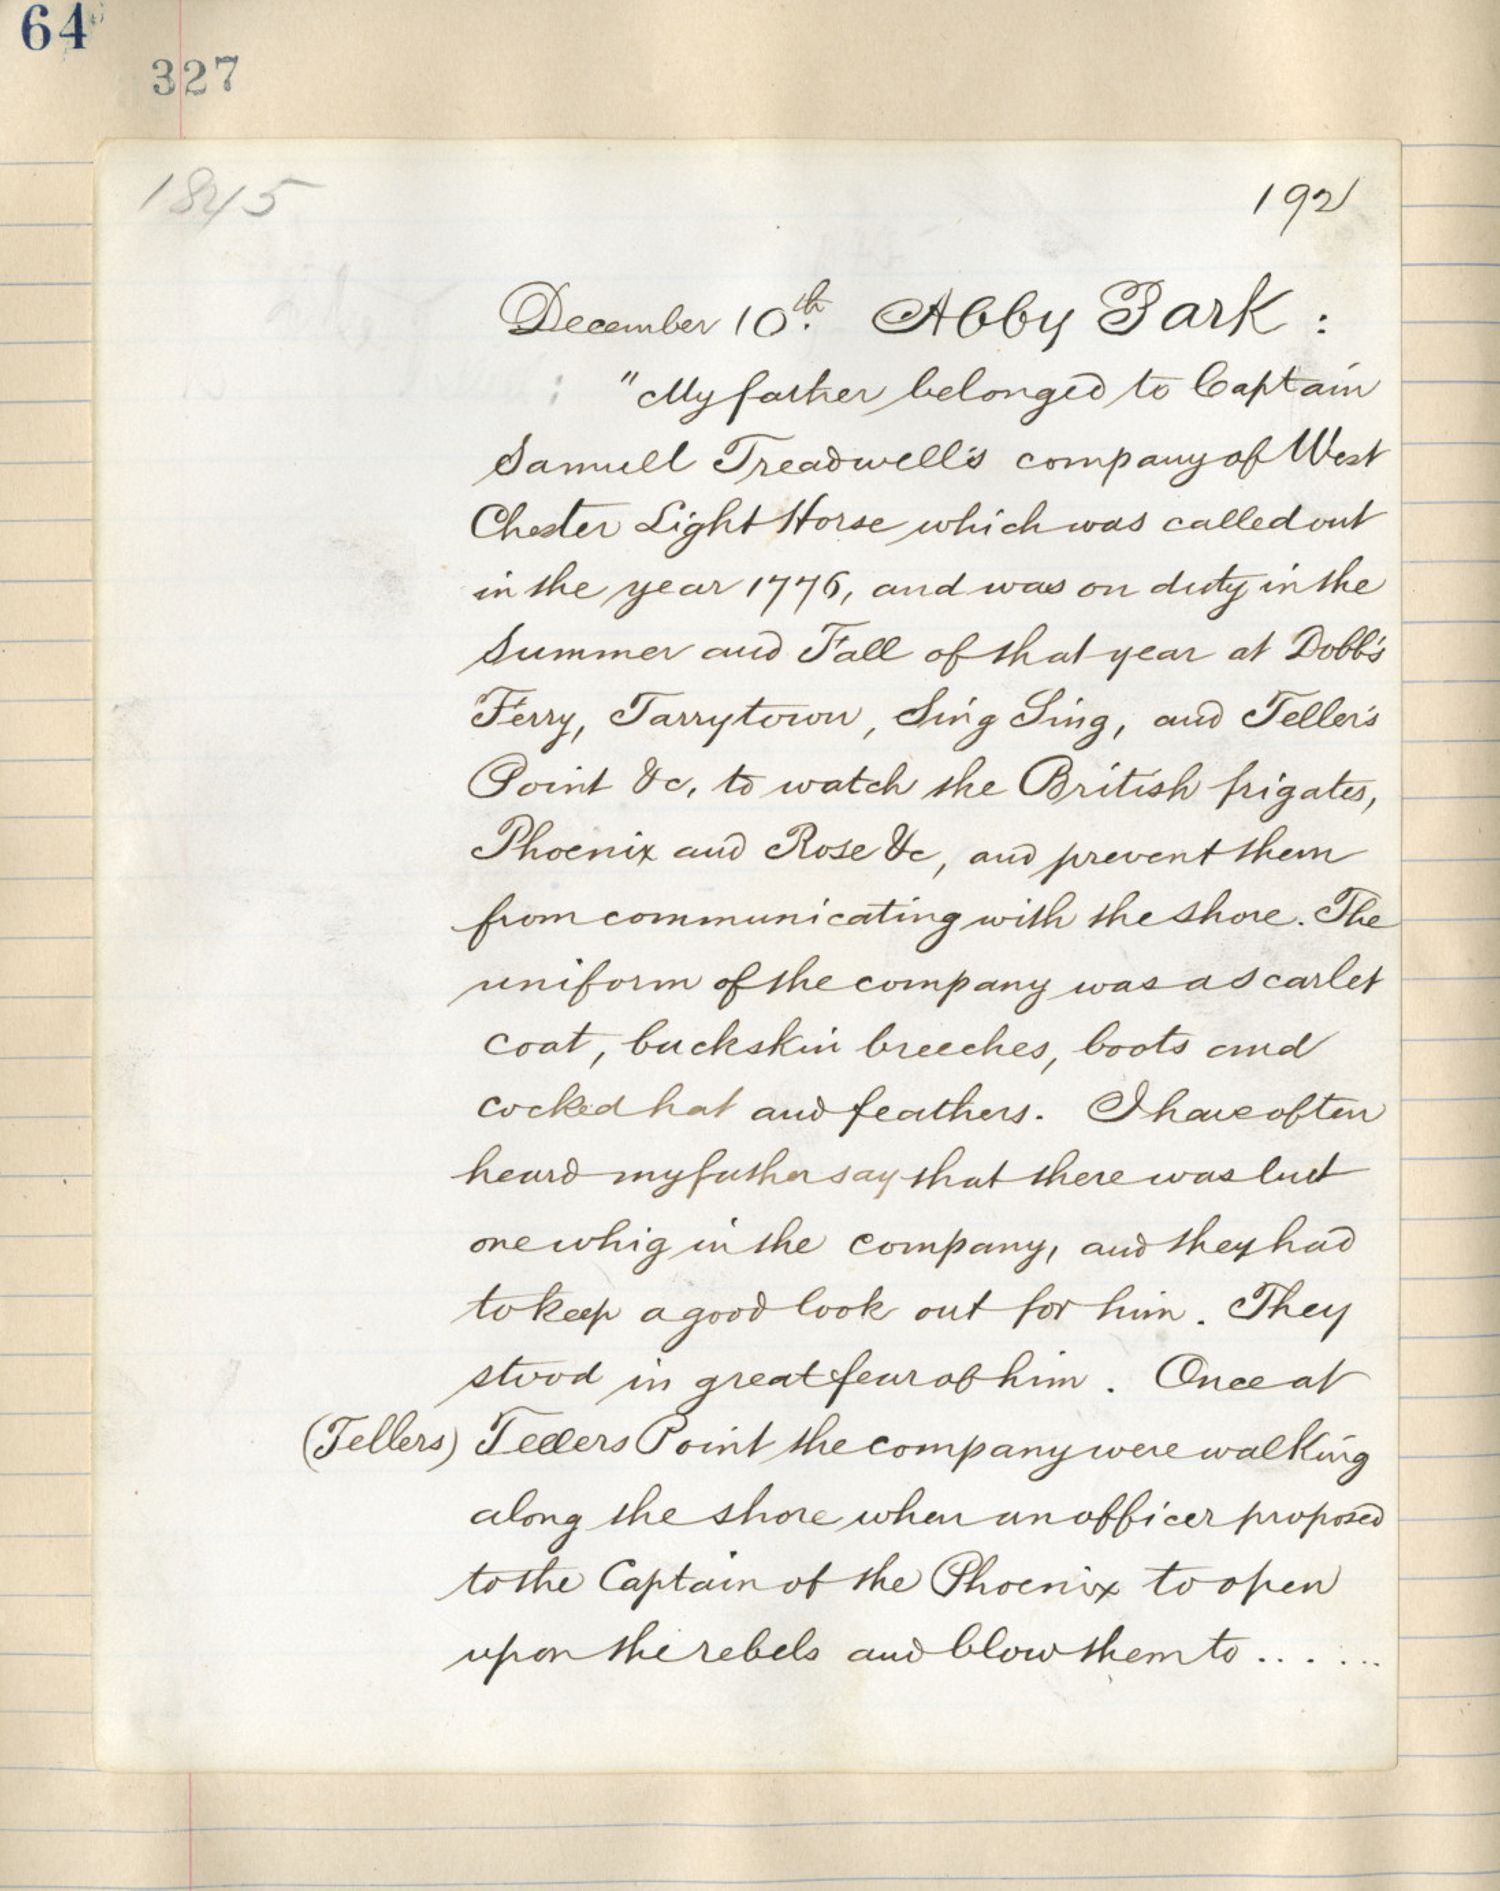 64
327
1845
192
December 10th. Abby Park :
"My father belonged to Captain
Samuel Treadwell's company of West
Chester Light Horse which was called out
in the year 1776, and was on duty in the
Summer and Fall of that year at Dobb's
Ferry, Tarrytown, Sing Sing, and Teller's
Point &c, to watch the British frigates,
Phoenix and Rose &c, and prevent them
from communicating with the shore. The
uniform of the company was a scarlet
coat, buckskin breeches, boots and
cocked hat and feathers. I have often
heard my father say that there was but
one whig in the company, and they had
to keep a good look out for him. They
stood in great fear of him. Once at
(Tellers) Tellers Point the company were walking
along the shore when an officer proposed
to the Captain of the Phoenix to open
upon the rebels and blow them to ......